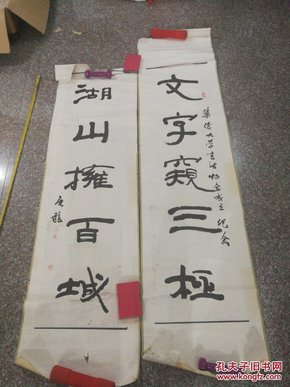 文字窥三极
华侨大学书法协会成立纪念
湖山拥百域
孔夫子旧书网